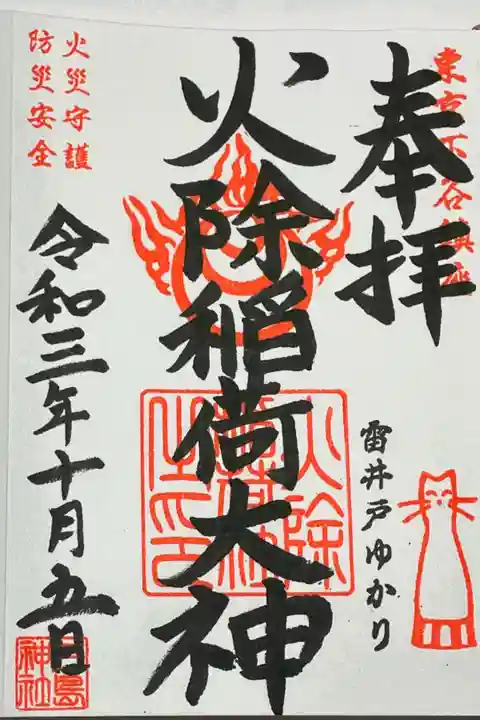 東京下谷鎮座
奉拝
雷井戸ゆかり
火除稲荷大神
火災守護
防災安全
令和三年十月五日